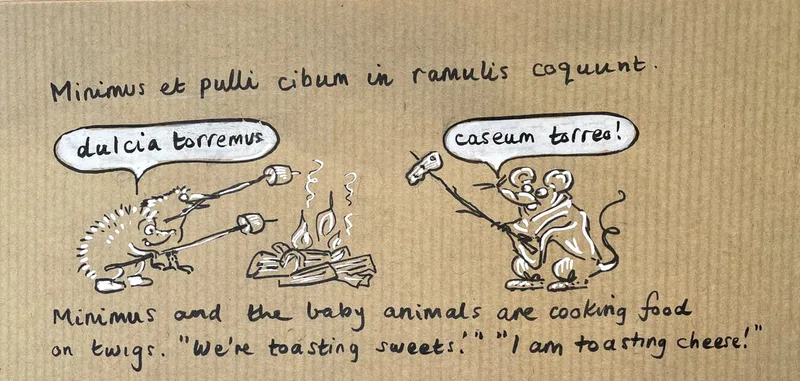 Minimus et pulli cibum in ramulis coquunt.
dulcia torremus
caseum torreo!
Minimus and the baby animals are cooking food
on twigs. "We're toasting sweets.'" "I am toasting cheese!"